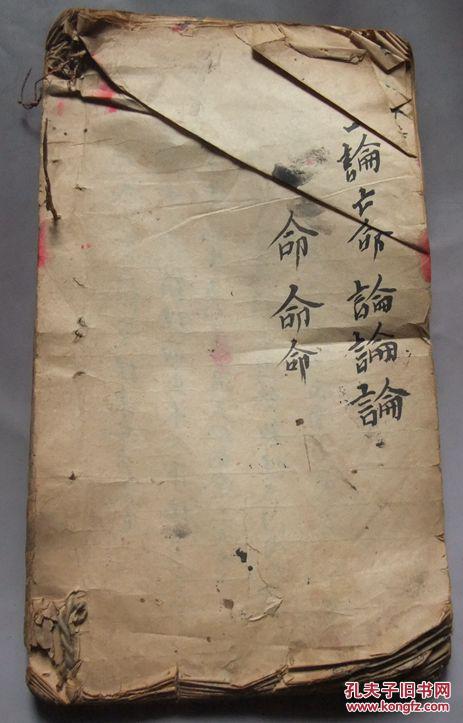 論命論論論
命命命
孔夫子旧书网
www.kongfz.com